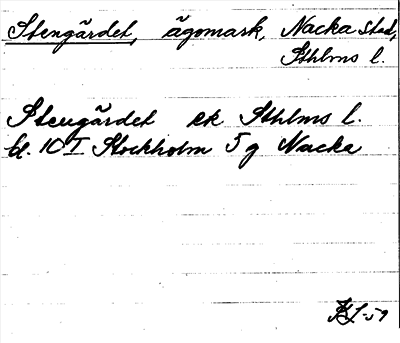 Stengärdet, ägomark, Nacka stad,
Sthlms l.
Stengärdet ek Sthlms l.
bl. 10 I Stockholm 5 g Nacka